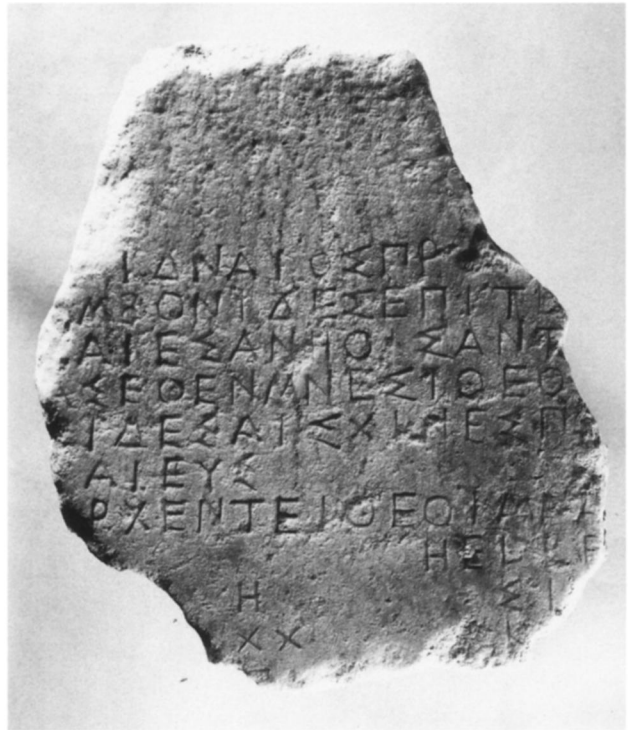 ΙΔΝΑΙΟΣΠΡ
ΜΒΟΝΙΔΕΣΕΠΙΤΕ
ΑΙΕΣΑΝΗΟΙΣΑΝΤ
ΣΕΘΕΝΜΝΕΣΙΘΕΟ
ΙΔΕΣΑΙΣΧΙΝΕΣΠ
ΑΙΕΥΣ
ΡΧΕΝΤΕΙΘΕΟΙΜΝΑ
ΗΕΛΛΕ
Η ΣΙ
ΧΧ